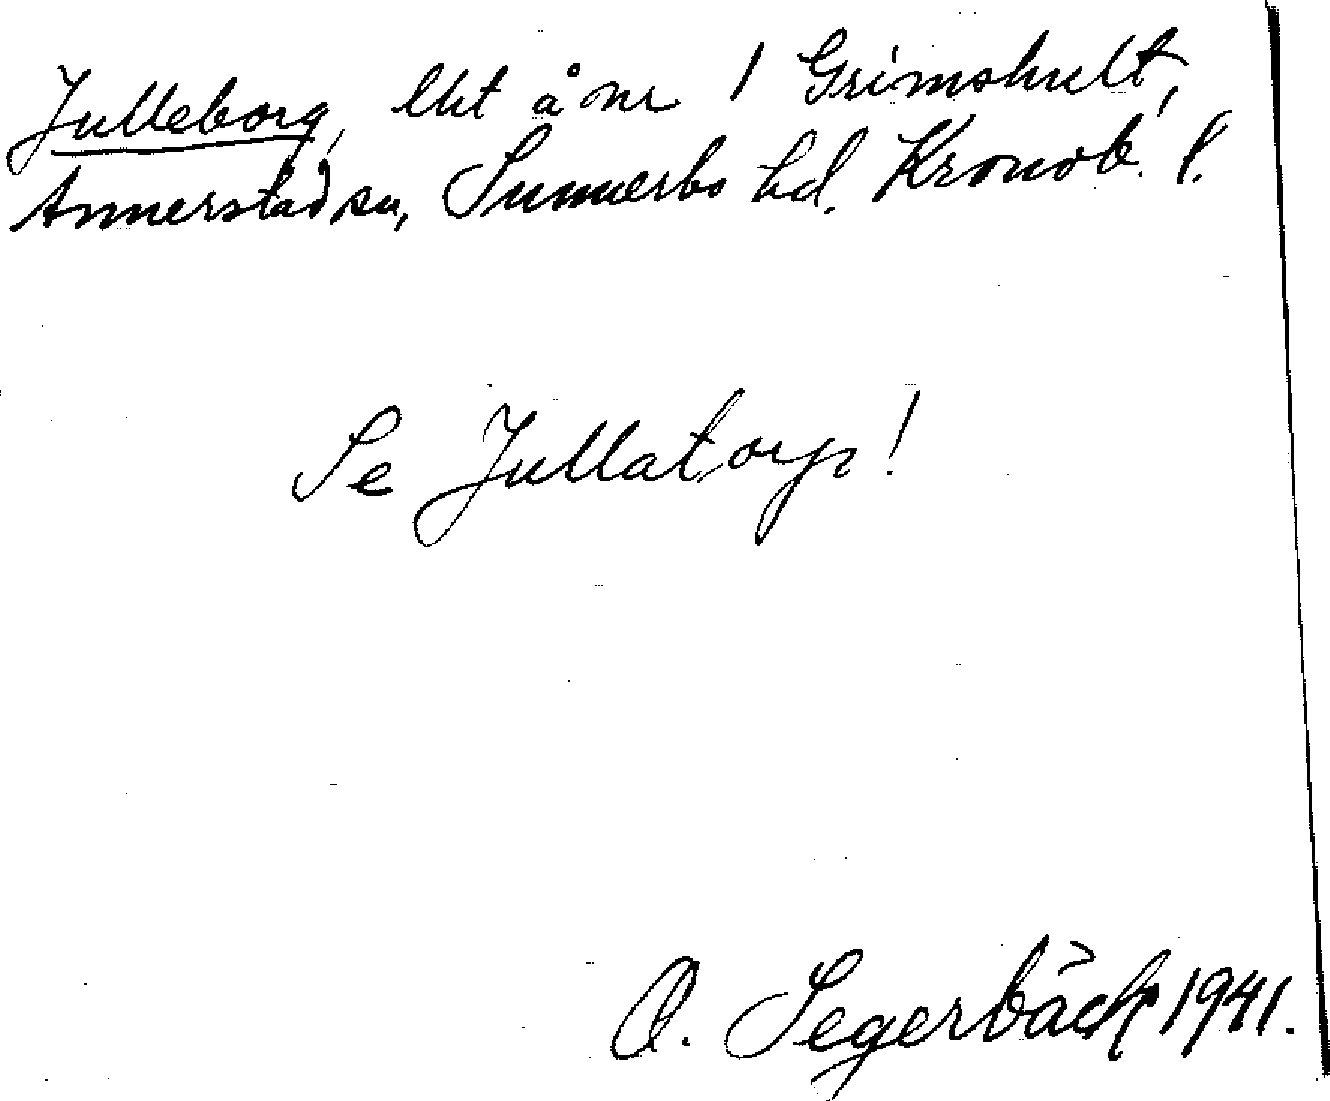 Julleborg, lht å nr 1 Grimshult,
Annerstad sn, Sunnerbo hd. Kronob. l.
Se Jullatorp!
O. Segerbäck 1941.